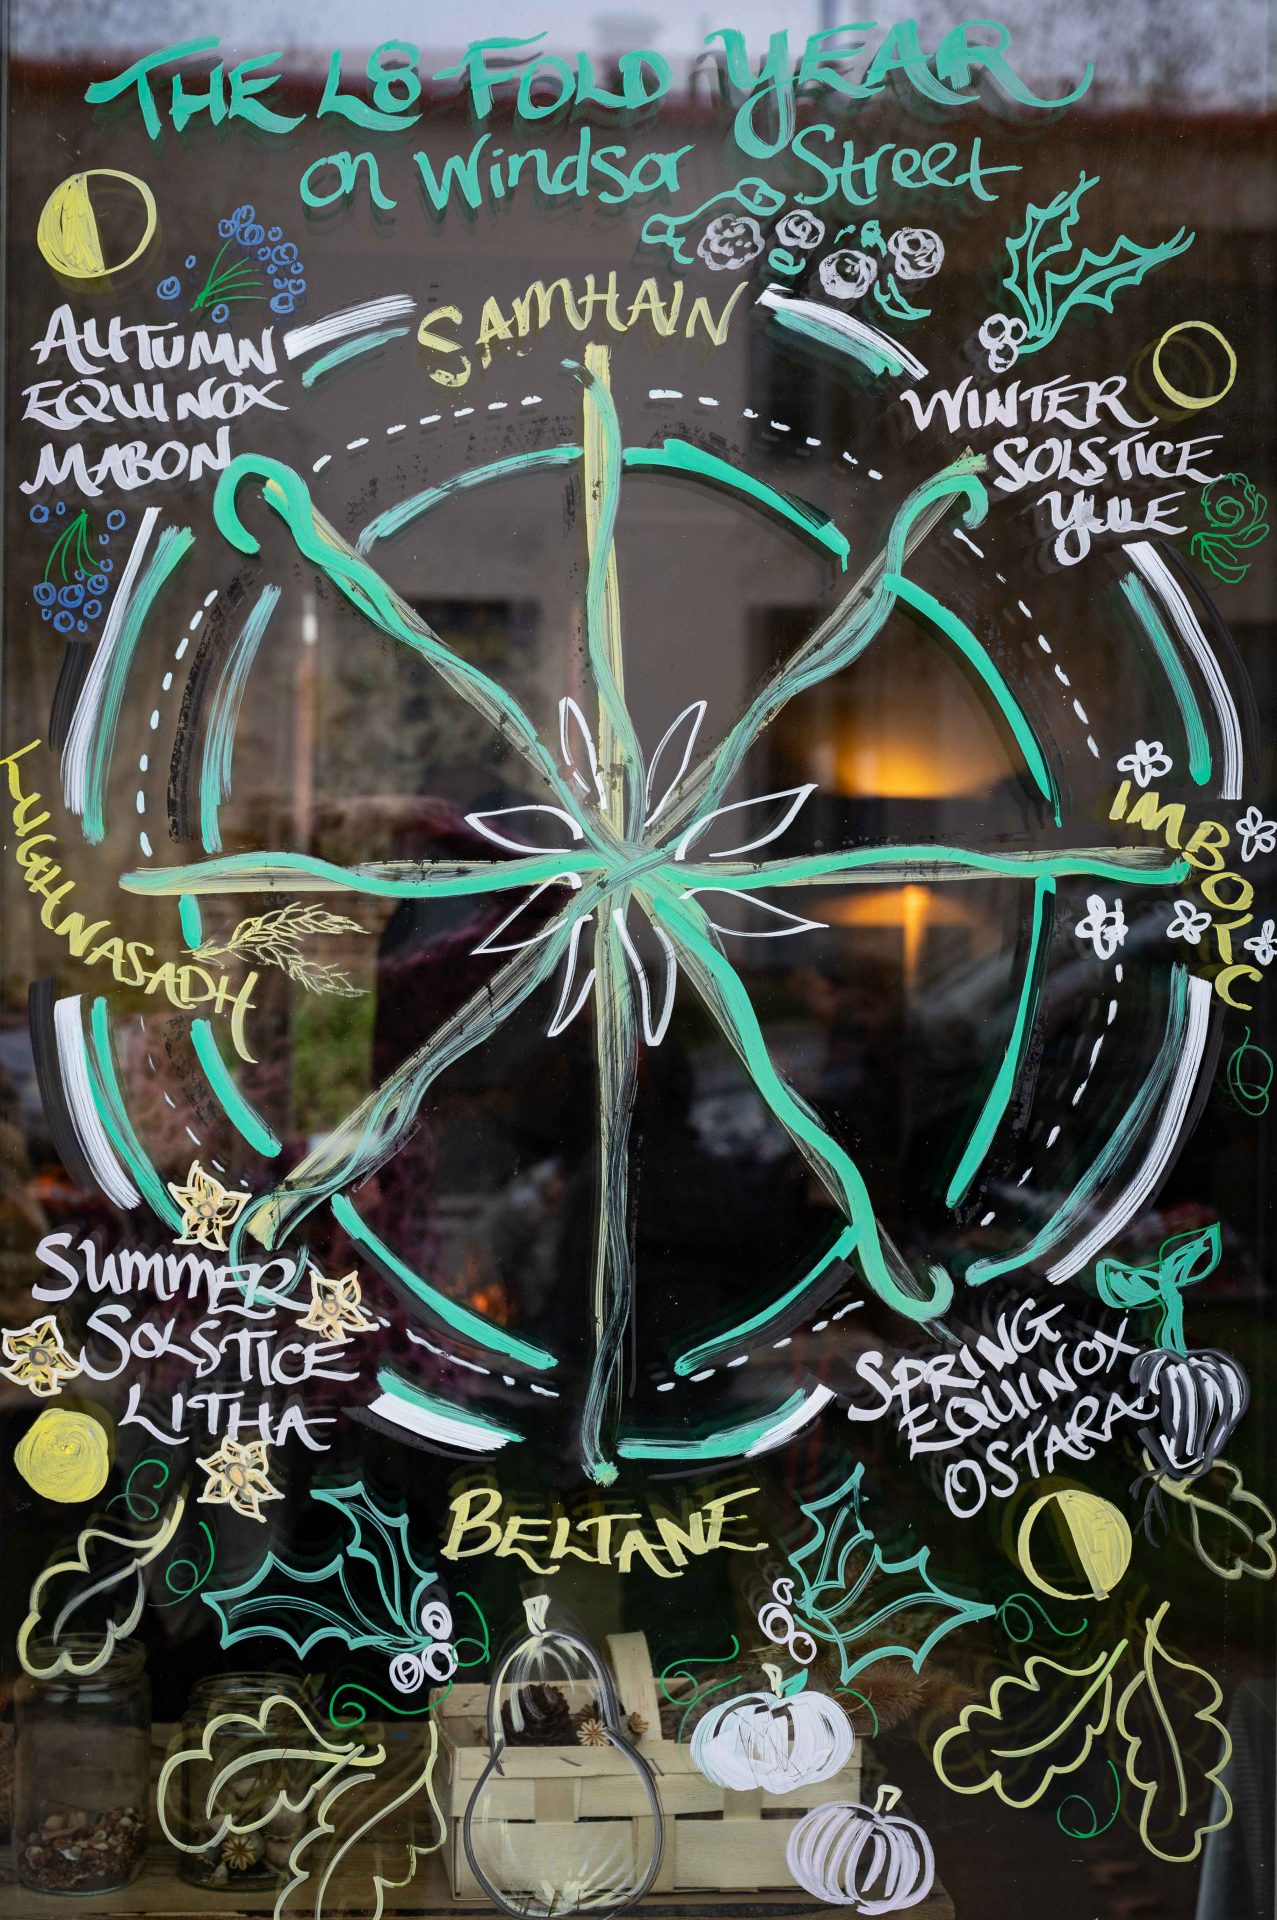 THE L8-FOLD YEAR
on Windsor Street
SAMHAIN
AUTUMN
EQUINOX
MABON
WINTER
SOLSTICE
YULE
LUGHNASADH
IMBOLC
SUMMER
SOLSTICE
LITHA
SPRING
EQUINOX
OSTARA
BELTANE